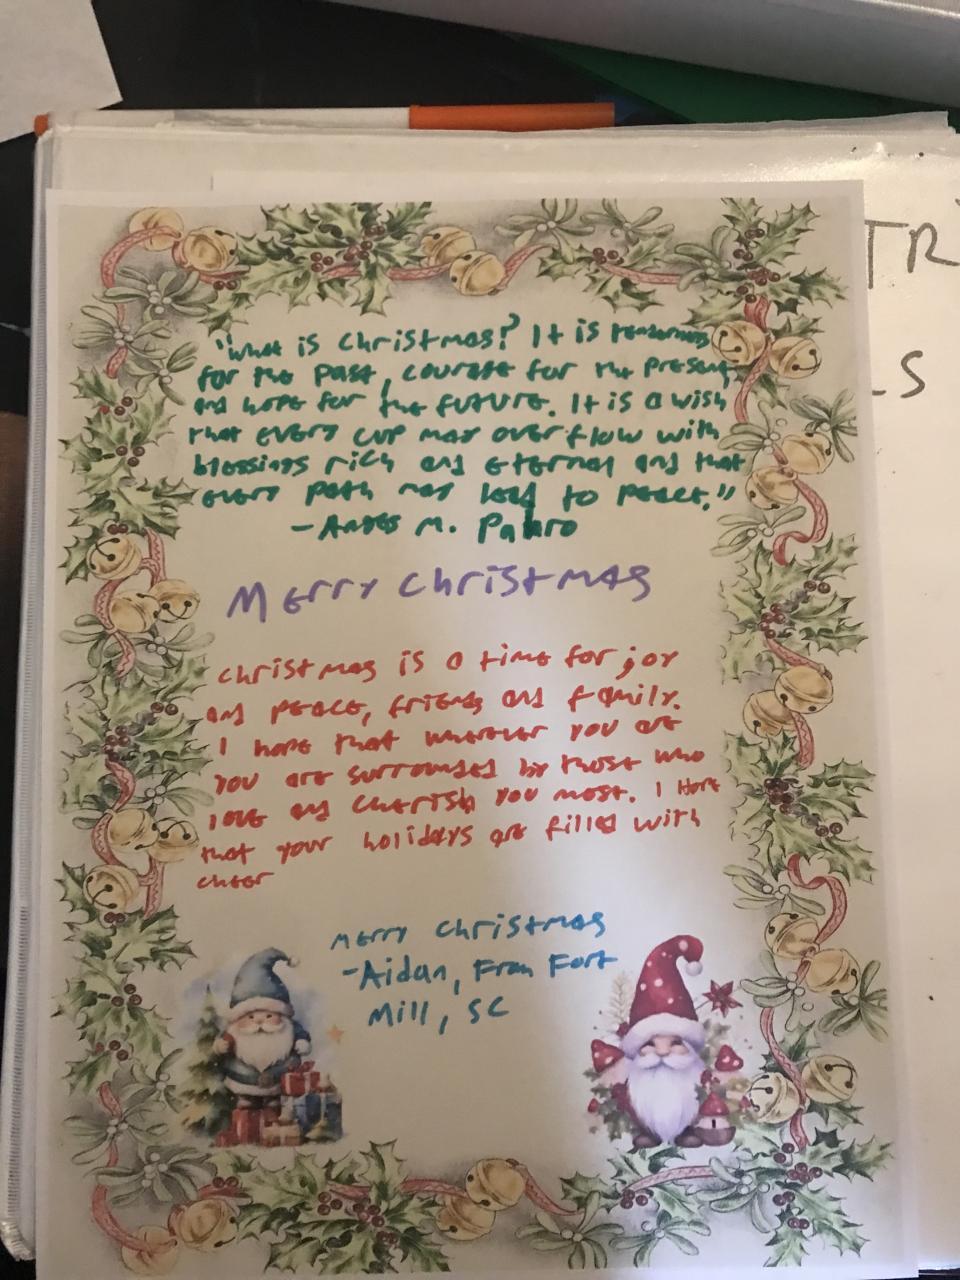 "What is Christmas? It is tenderness
for the past, courage for the present,
and hope for the future. It is a wish
that every cup may overflow with
blessings rich and eternal and that
every path may lead to peace."
-Agnes M. Pahro
Merry Christmas
Christmas is a time for joy
and peace, friends and family.
I hope that wherever you are
you are surrounded by those who
love and cherish you most. I hope
that your holidays are filled with
cheer
Merry Christmas
-Aidan, From Fort
Mill, SC
TR
LS